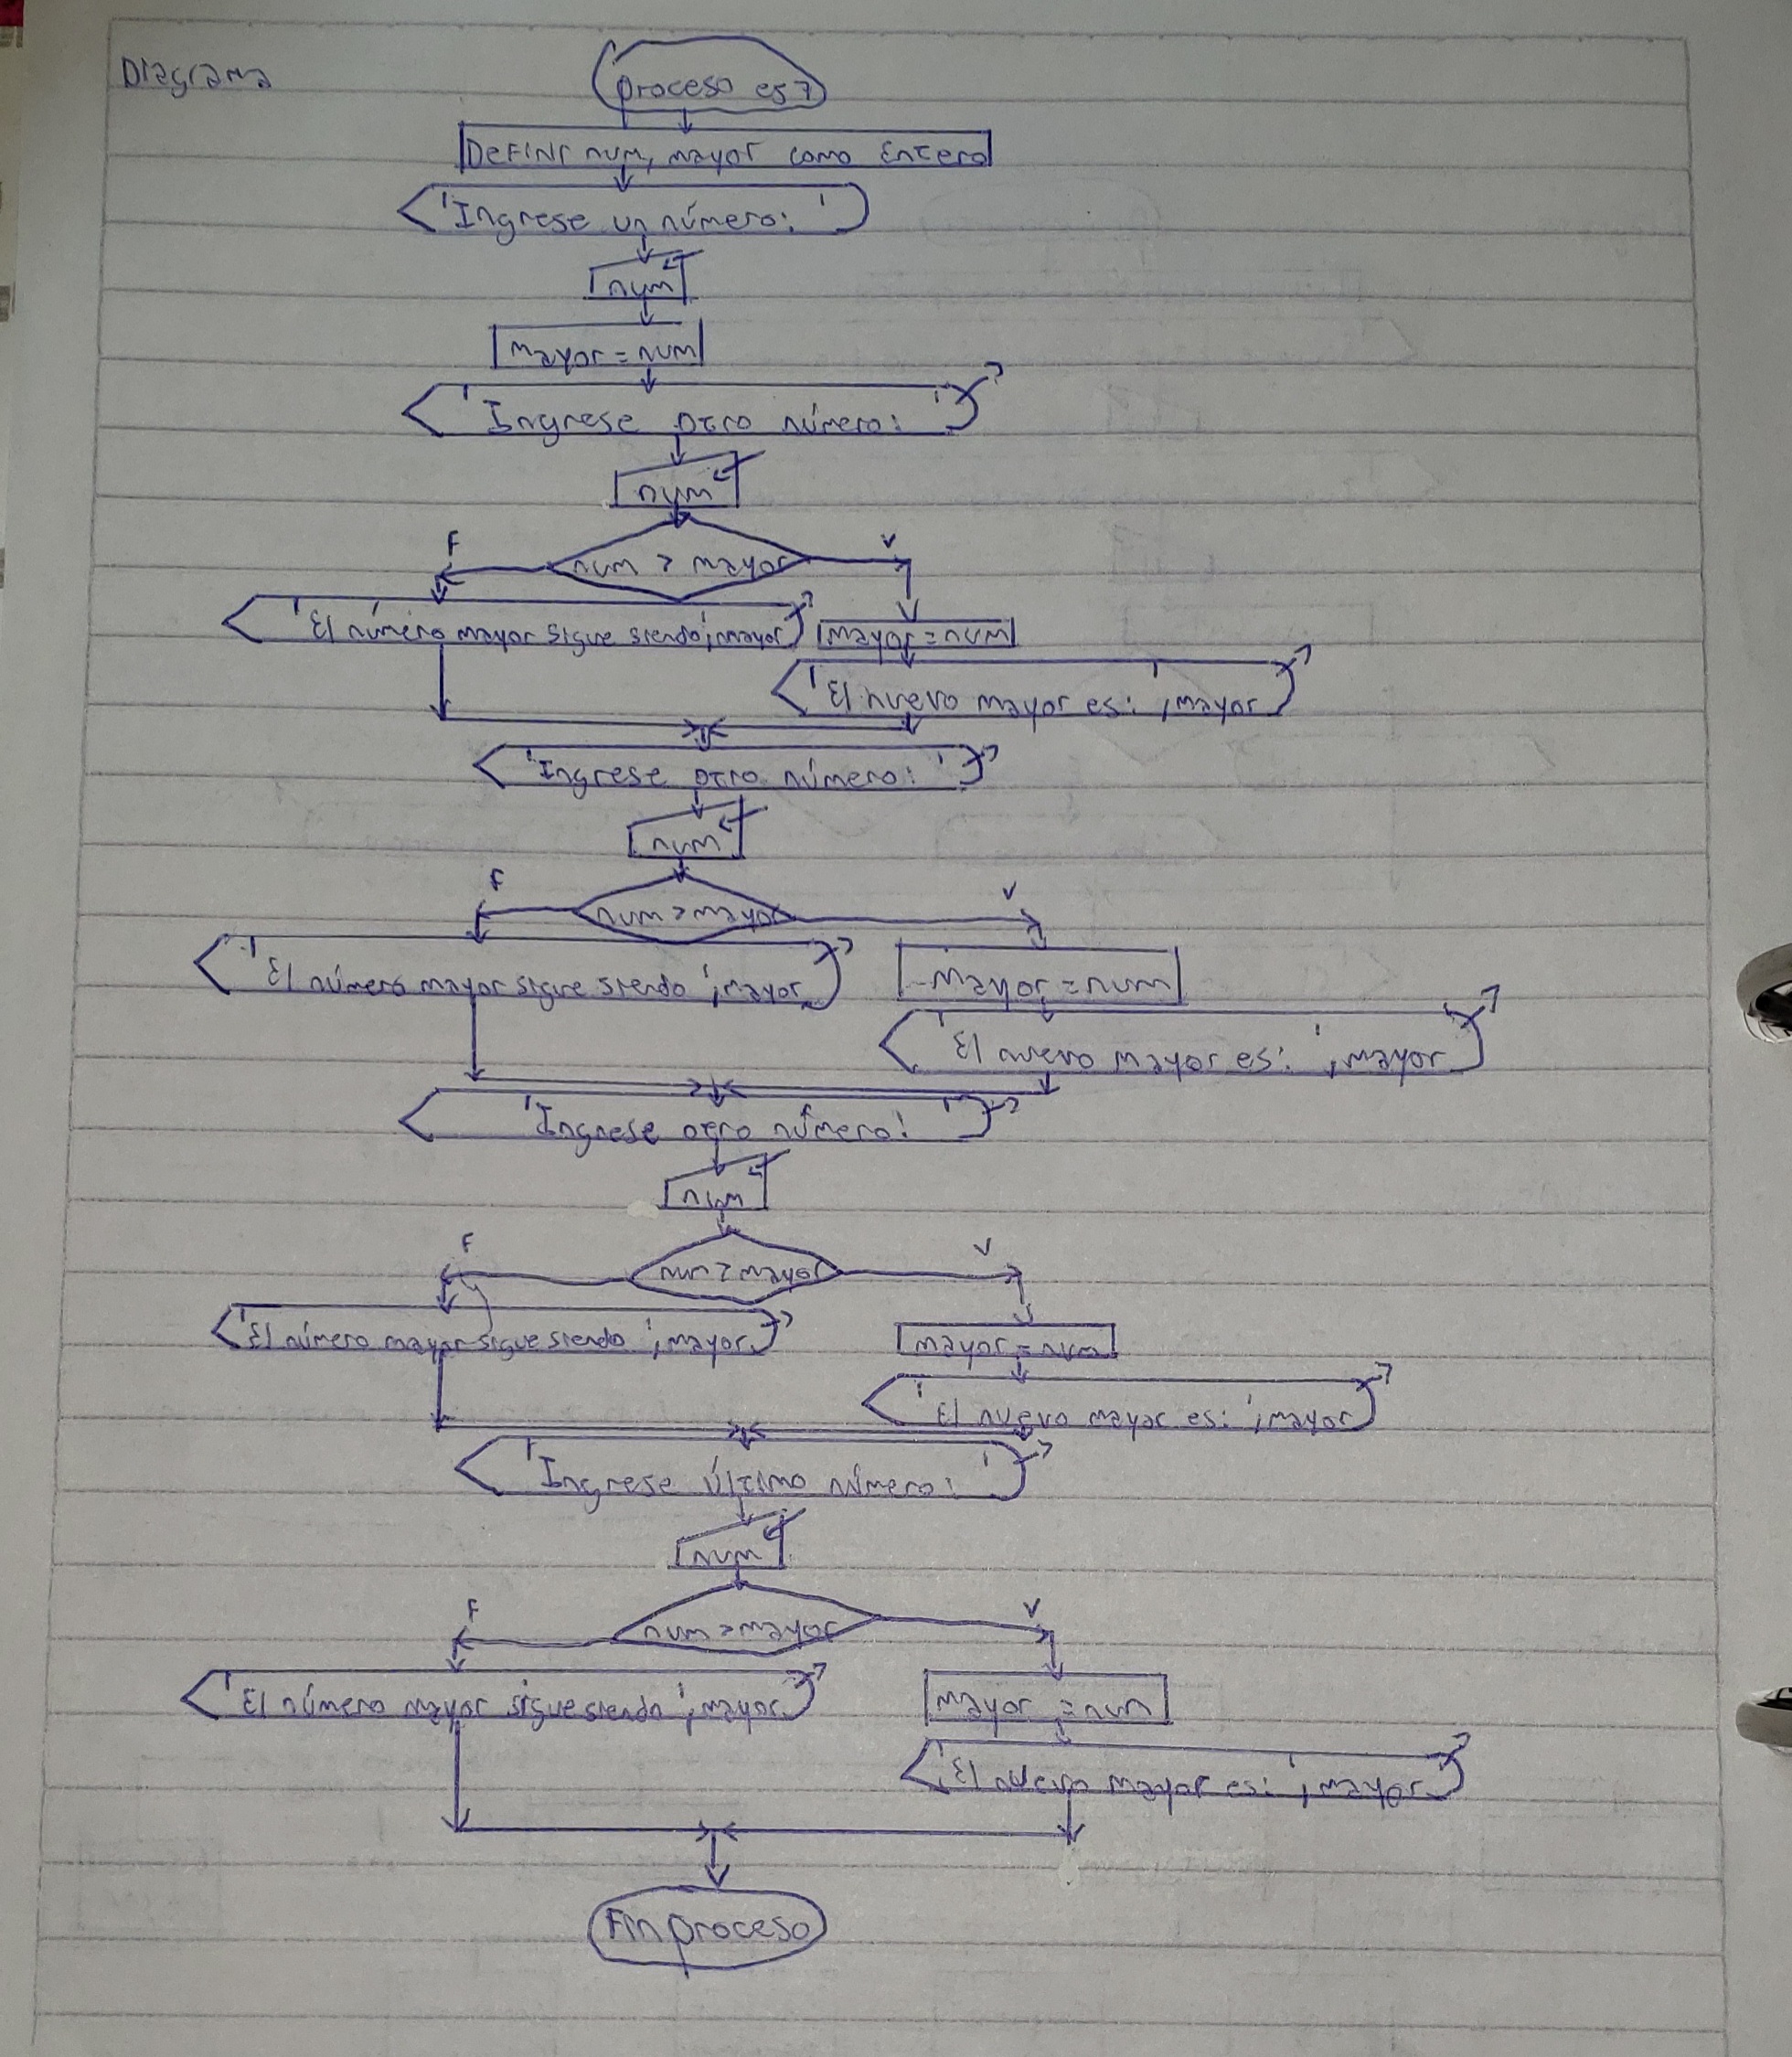 Diagrama
proceso es7
Definir num, mayor como Entero
'Ingrese un número: '
num
mayor = num
'Ingrese otro número: '
num
num > mayor
F
V
'El número mayor sigue siendo', mayor
mayor = num
'El nuevo mayor es: ', mayor
'Ingrese otro número: '
num
num > mayor
F
V
'El número mayor sigue siendo ', mayor
Mayor = num
'El nuevo mayor es: ', mayor
'Ingrese otro número: '
num
num > mayor
F
V
'El número mayor sigue siendo ', mayor
mayor = num
'El nuevo mayor es: ', mayor
'Ingrese último número: '
num
num > mayor
F
V
'El número mayor sigue siendo ', mayor
mayor = num
'El nuevo mayor es: ', mayor
Fin proceso